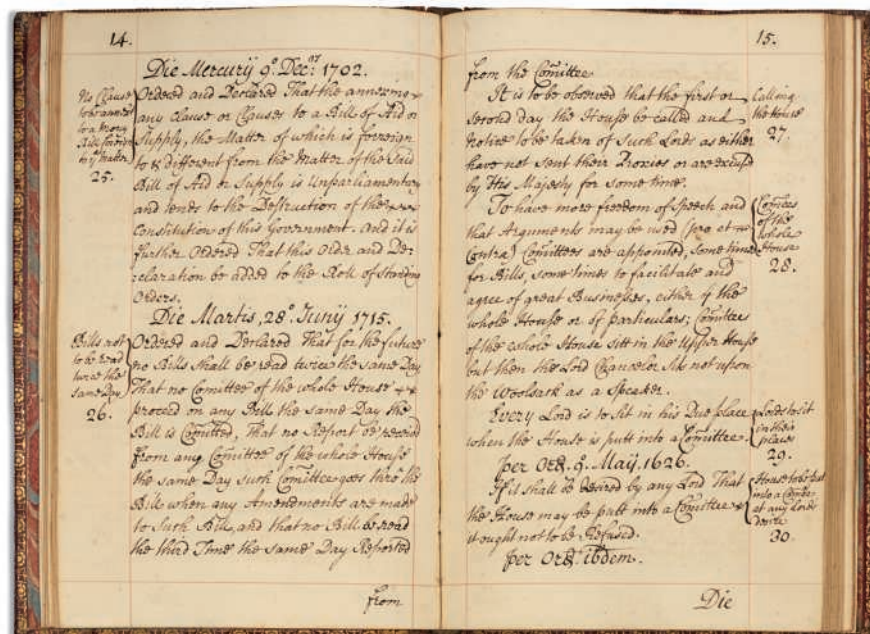 14.
Die Mercurÿ 9.º Dec.r 1702.
No Clause
to be annexed
to a Money
Bill foreign
to yᵉ matter
25.
Ordered and Declared That the annexing
any Clause or Clauses to a Bill of Aid or
Supply, the Matter of which is forreign
to & different from the Matter of the Said
Bill of Aid or Supply is Unparliamentary
and tends to the Destruction of the
Constitution of this Government. And it is
further Ordered That this Order and De:
:claration be added to the Roll of Standing
Orders.
Die Martis, 28.º Junÿ 1715.
Bills not
to be read
twice the
same Day
26.
Ordered and Declared That for the future
no Bills shall be read twice the same Day
That no Comittee of the whole House
proceed on any Bill the same Day the
Bill is Comitted, That no Report be received
from any Comittee of the whole House
the same Day such Comittee goes thro' the
Bill when any Amendments are made
to such Bill, and that no Bill be read
the third Time the same Day Reported
from
15.
from the Comittee
It is to be observed that the first or
second day the House be called and
Notice to be taken of such Lords as either
have not sent their Proxies or are excused
by His Majesty for some time.
Calling
the House
27.
To have more freedom of Speech and
that Arguments may be used (pro et
Contra) Comittees are appointed, sometimes
for Bills, sometimes to facilitate and
agree of great Businesses, either of the
whole House or of particulars; Comittees
of the whole House sitt in the Upper House
but then the Lord Chancelor sits not upon
the Woolsack as a Speaker.
Comtees
of the
whole
House
28.
Every Lord is to sit in his Due place
when the House is putt into a Comittee.
Lords to sit
in their
places
29.
per Ord. 9. May. 1626.
If it shall be desired by any Lord That
the House may be putt into a Comittee
it ought not to be Refused.
House to be put
into a Comtee
at any Lords
desire
30.
per Ord. ibdem.
Die